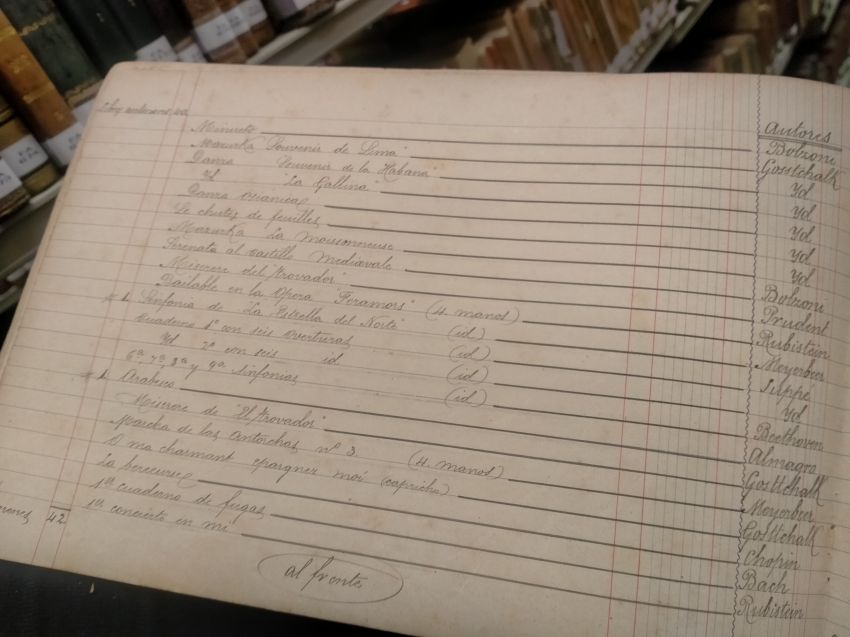 Autores
Minueto Bolzoni
Mazurka "Souvenir de Lima" Gosstchalk
Danza "Souvenir de la Habana" Yd
Yd "La Gallina" Yd
Danza Osianica Yd
Le chutes de feuilles Yd
Mazurka La moissonneuse Yd
Serenata al castillo mediævale Bolzoni
Miserere del Trovador" Prudent
Bailable en la Opera "Feramors" (4 manos) Rubistein
Sinfonia de "La Estrella del Norte" (id) Meyerbeer
Cuaderno 1º con seis overturas (id) Suppé
Yd 2º con seis id (id) Yd
6ª, 7ª, 8ª y 9ª Sinfonias (id) Beethoven
Arabesco Almagro
Miserere de "El Trovador" Gosttchalk
Marcha de las antorchas nº 3 (4 manos) Meyerbeer
O ma charmant epargnez moi (capricho) Gosttchalk
La berceuse Chopin
1º cuaderno de fugas Bach
42 1er concierto en mi Rubistein
al frente